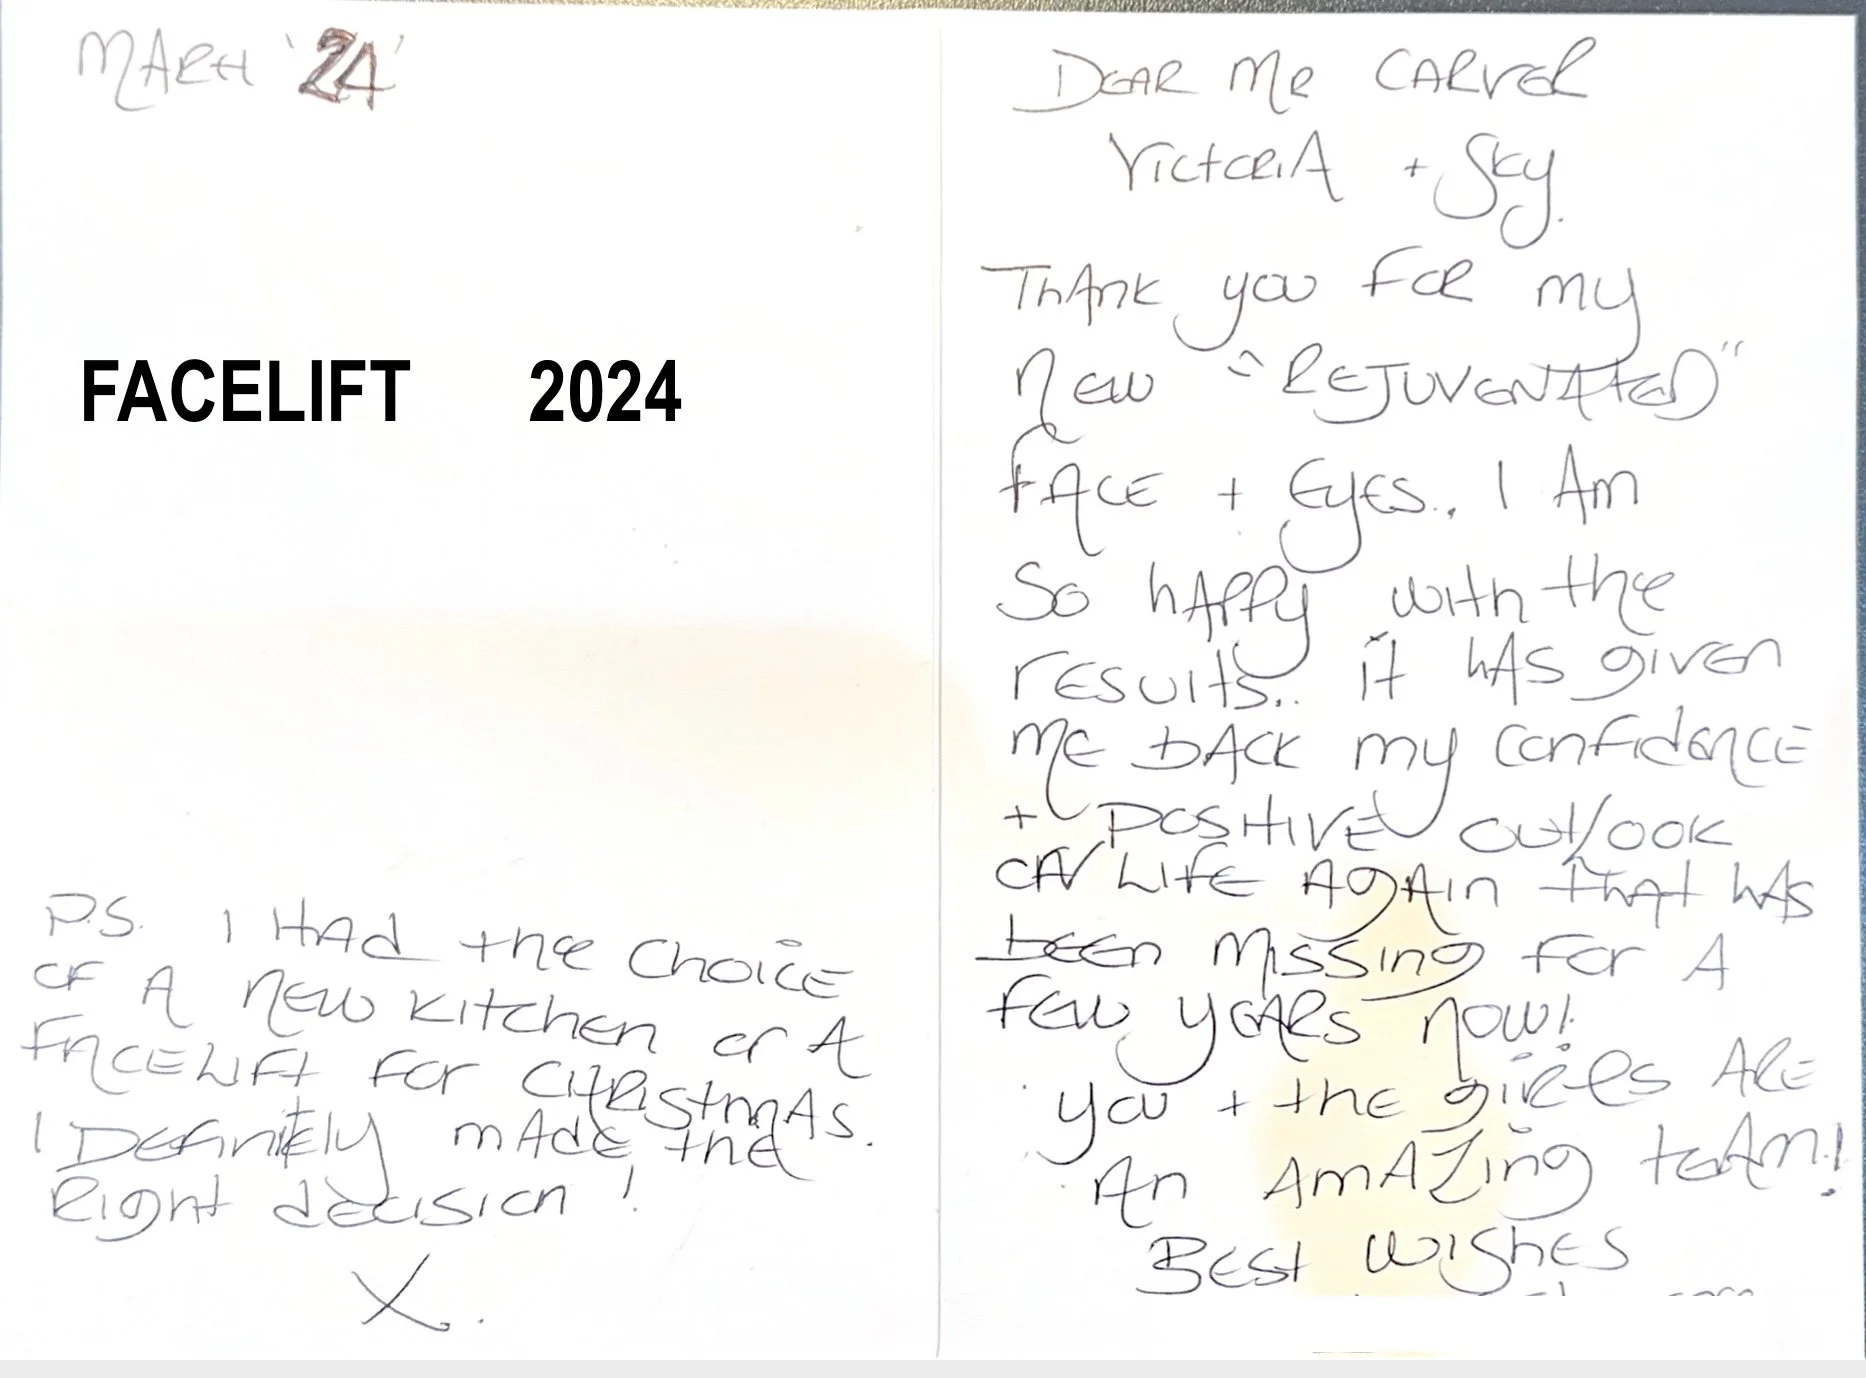 MARH '24'
FACELIFT 2024
P.S. I HAd the Choice
OF A NEW Kitchen or A
FACELIFT FOR CHRistmAS.
I DEFinitEly mAdE the
Right decision!
X.
DEAR MR CARVER
VICtORIA + Sky.
ThAnk you FOR my
New "REJUVENATED"
FACE + EyES.. I Am
So hAPPy with the
rESUltS.. it hAS given
ME bACK my CONFidENCE
+ POSITIVE OUtlOOK
ON LIFE AgAIn thAt hAS
bEEn MiSSing For A
FEW yEARS NOW!
you + thE giRls ARE
An AmAZing tEAm!
BESt WiShES